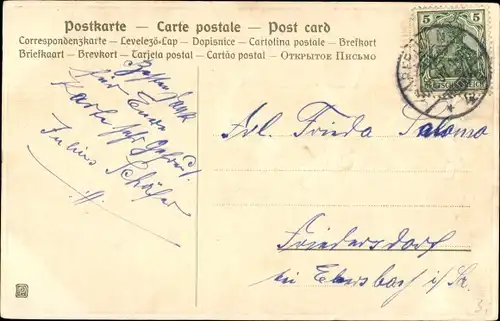 Postkarte – Carte postale – Post card
Correspondenzkarte – Levelező-Lap – Dopisnice – Cartolina postale – Brefkort
Briefkaart – Brevkort – Tarjeta postal – Cartão postal – Открытое Письмо
5 5
Besten Dank
für Eure
Karte sehr gefreut.
Julius Schäfer
Frl. Frieda Salomo
Friedersdorf
bei Ebersbach i/Sa.